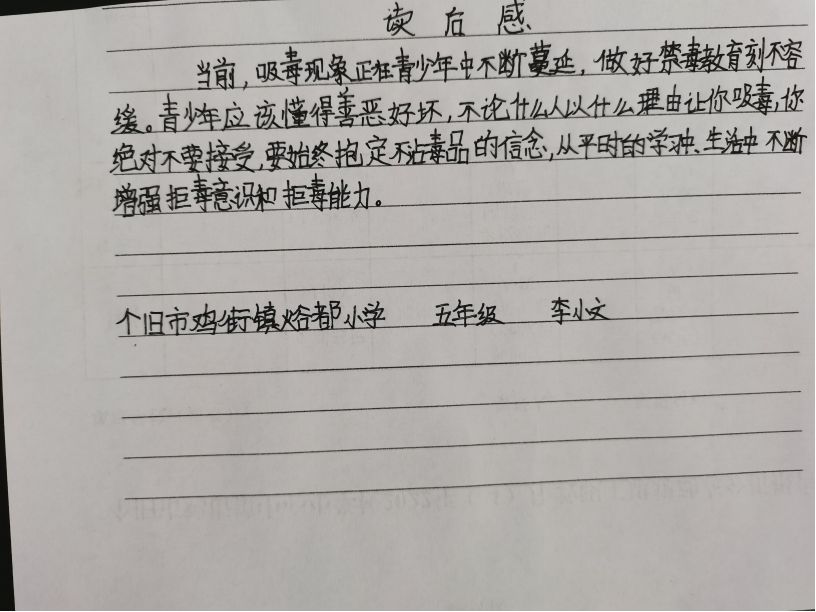 读后感
当前，吸毒现象正在青少年中不断蔓延，做好禁毒教育刻不容
缓。青少年应该懂得善恶好坏，不论什么人以什么理由让你吸毒，你
绝对不要接受，要始终抱定不沾毒品的信念，从平时的学习中、生活中不断
增强拒毒意识和拒毒能力。
个旧市鸡街镇焙都小学 五年级 李小文